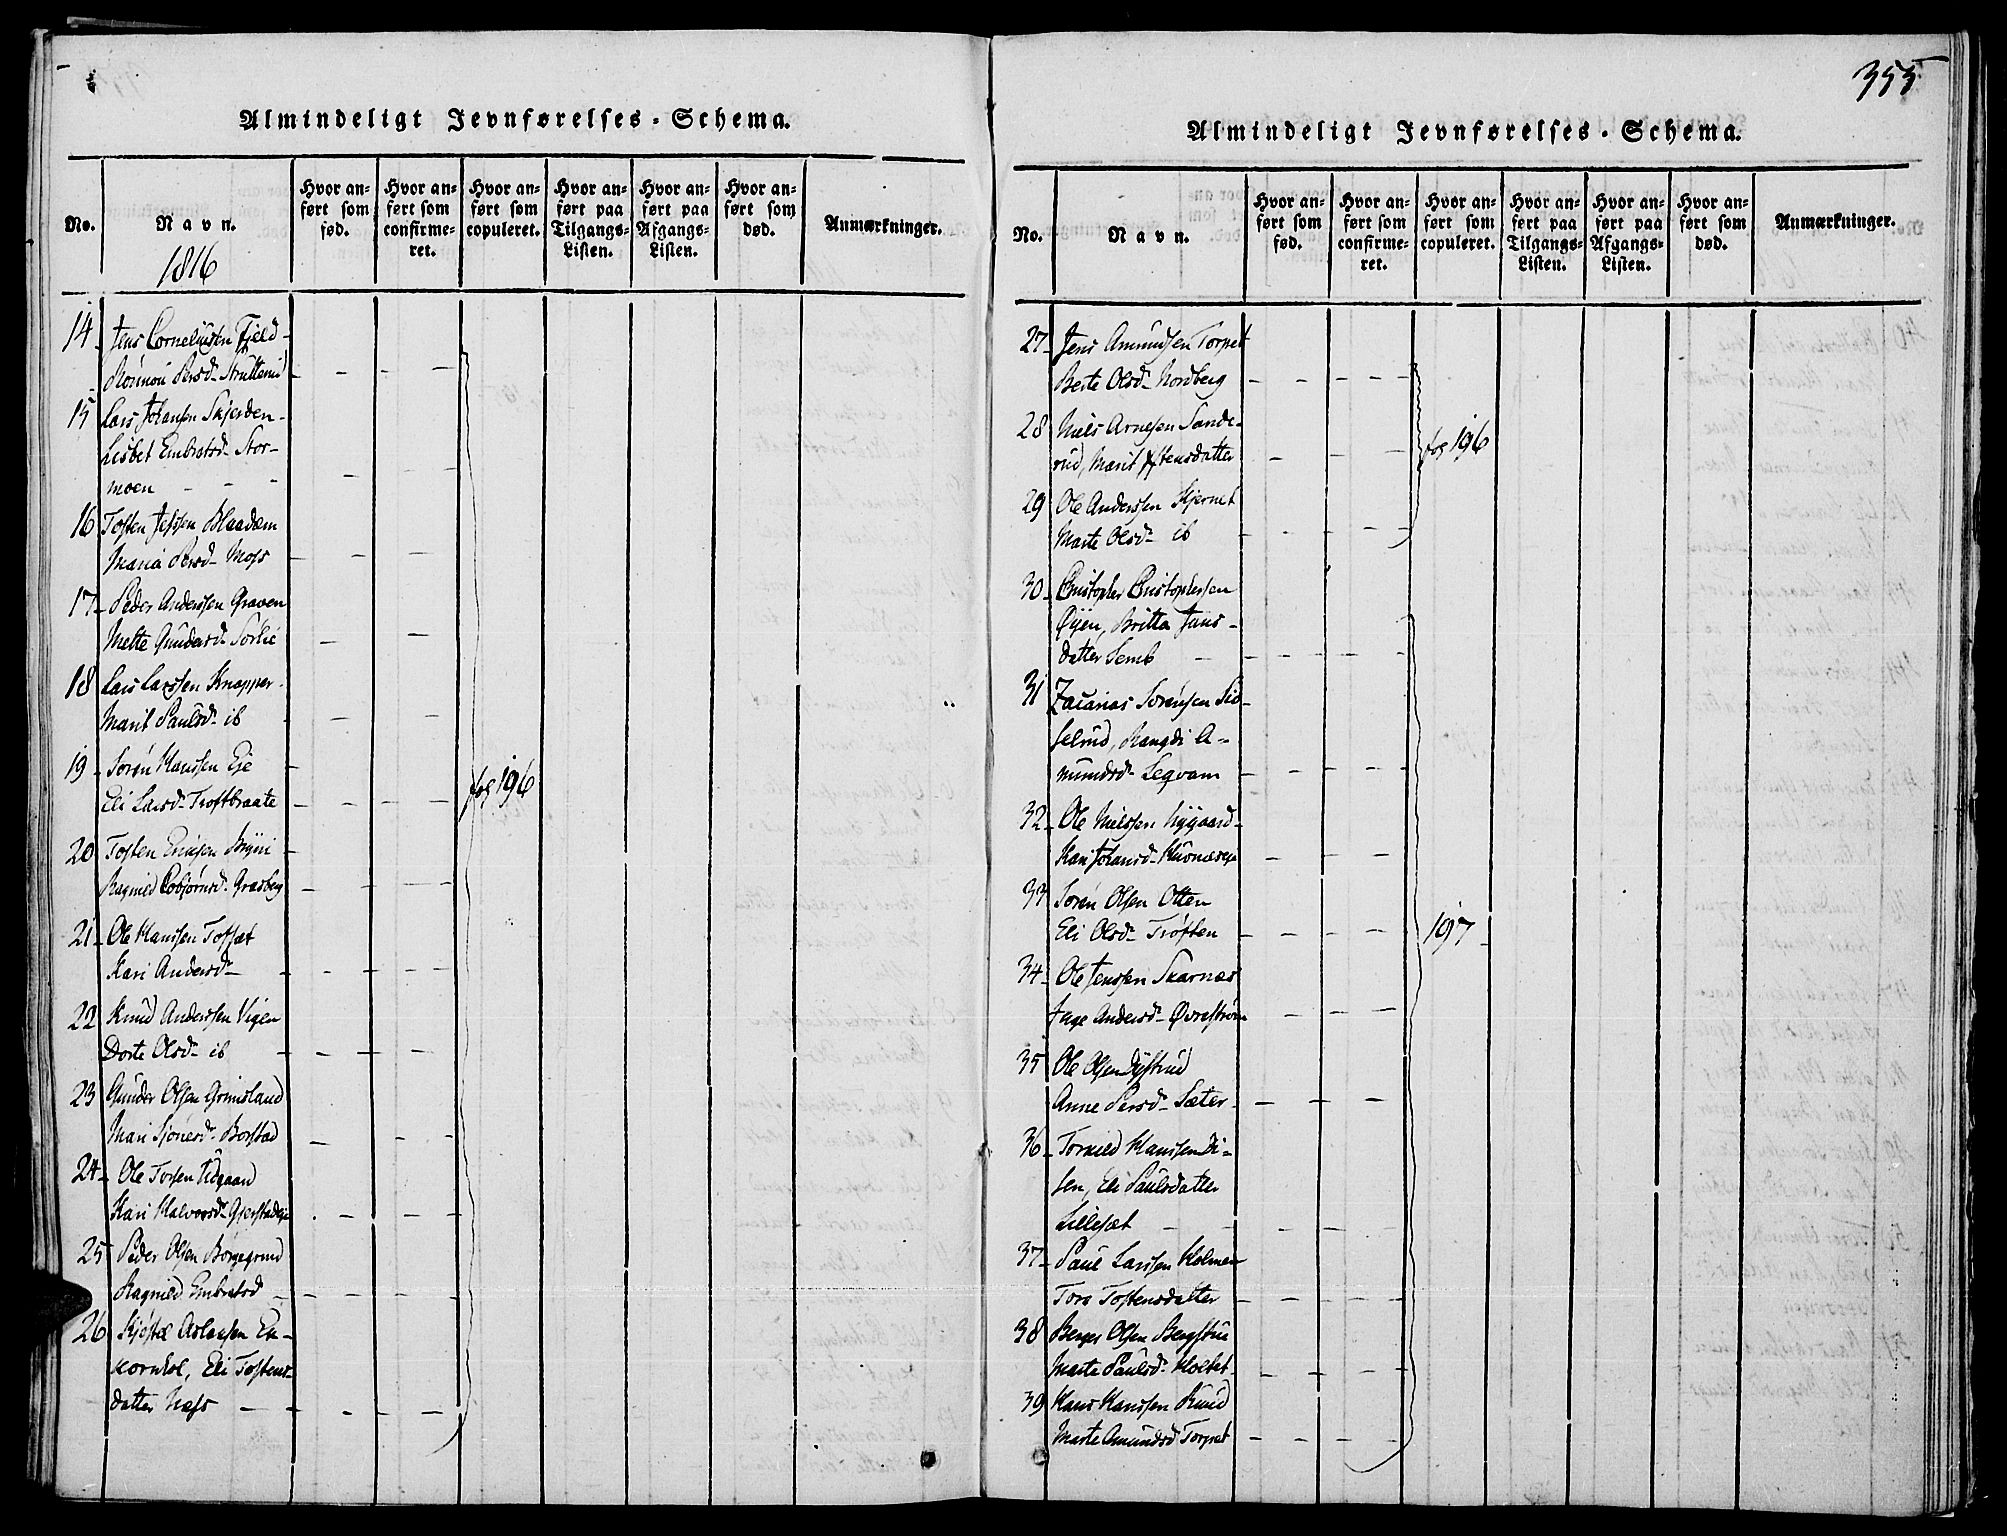 Almindeligt Jevnførelses-Schema.
No.
Navn.
Hvor an-
ført som
fød.
Hvor an-
ført som
confirme-
ret.
Hvor an-
ført som
copuleret.
Hvor an-
ført paa
Tilgangs-
Listen.
Hvor an-
ført paa
Afgangs-
Listen.
Hvor an-
ført som
død.
Anmærkninger.
1816
14 Jens Corneliusen Fjeld-
Persd-
15 Lars Johansen Skjerden-
Lisbet Embretsd- Stor-
moen
16 Tosten Jensen Blaadam
Maria Persd- Moss
17 Peder Anderssen Graven
Mette Gundersd- Sørlie
18 Lars Larssen Knapper-
Marit Paulsd- ib
19 Sørøn Hanssen Eje
Eli Larsd- Trostbraate
fol 196
20 Tosten Ericsen Bryni
Ragnild Graaberg
21 Ole Hanssen Tofsæt
Kari Andersd-
22 Knud Anderssen Vigen
Dorte Olsd- ib
23 Gunder Olsen Grimsland
Mari Sjonersd- Borstad
24 Ole Torsen
Kari Halvorsd- Gjerstadeje
25 Peder Olsen Børgegrind
Ragnild Embretsd
26 Kjøstel Aslaksen En-
kornhol, Eli Tostens-
datter Næss
355
Almindeligt Jevnførelses-Schema.
No.
Navn.
Hvor an-
ført som
fød.
Hvor an-
ført som
confirme-
ret.
Hvor an-
ført som
copuleret.
Hvor an-
ført paa
Tilgangs-
Listen.
Hvor an-
ført paa
Afgangs-
Listen.
Hvor an-
ført som
død.
Anmærkninger.
27 Jens Amundsen Torpet
Berte Olsd- Nordberg
28 Niels Arnesen Sande-
rud, Marit
fol 196
29 Ole Anderssen Skjernet
Marte Olsd- ib
30 Christopher Christophersen
Øyen, Britta Jans-
datter Semb
31 Zacarias Sørensen Sid-
selrud, Rangdi A-
mundsd- Segvam
32 Ole Nielssen Nygaard-
Kari Johansd-
33 Sørøn Olsen Otten
Eli Olsd- Trøften
197
34 Ole Jenssen Skarnæs
Inge Andersd- Øvrestrøm
35 Ole Olsen Dystrud
Anne Persd- Sæter
36 Torkild Hanssen Di-
sen, Eli Paulsdatter
Lillesæt
37 Paul Larssen Holmen
Tore Tostensdatter
38 Berger Olsen Bergstue
Marte Paulsd- Holtet
39 Hans Hanssen Ruud
Marte Amundsd Torpet